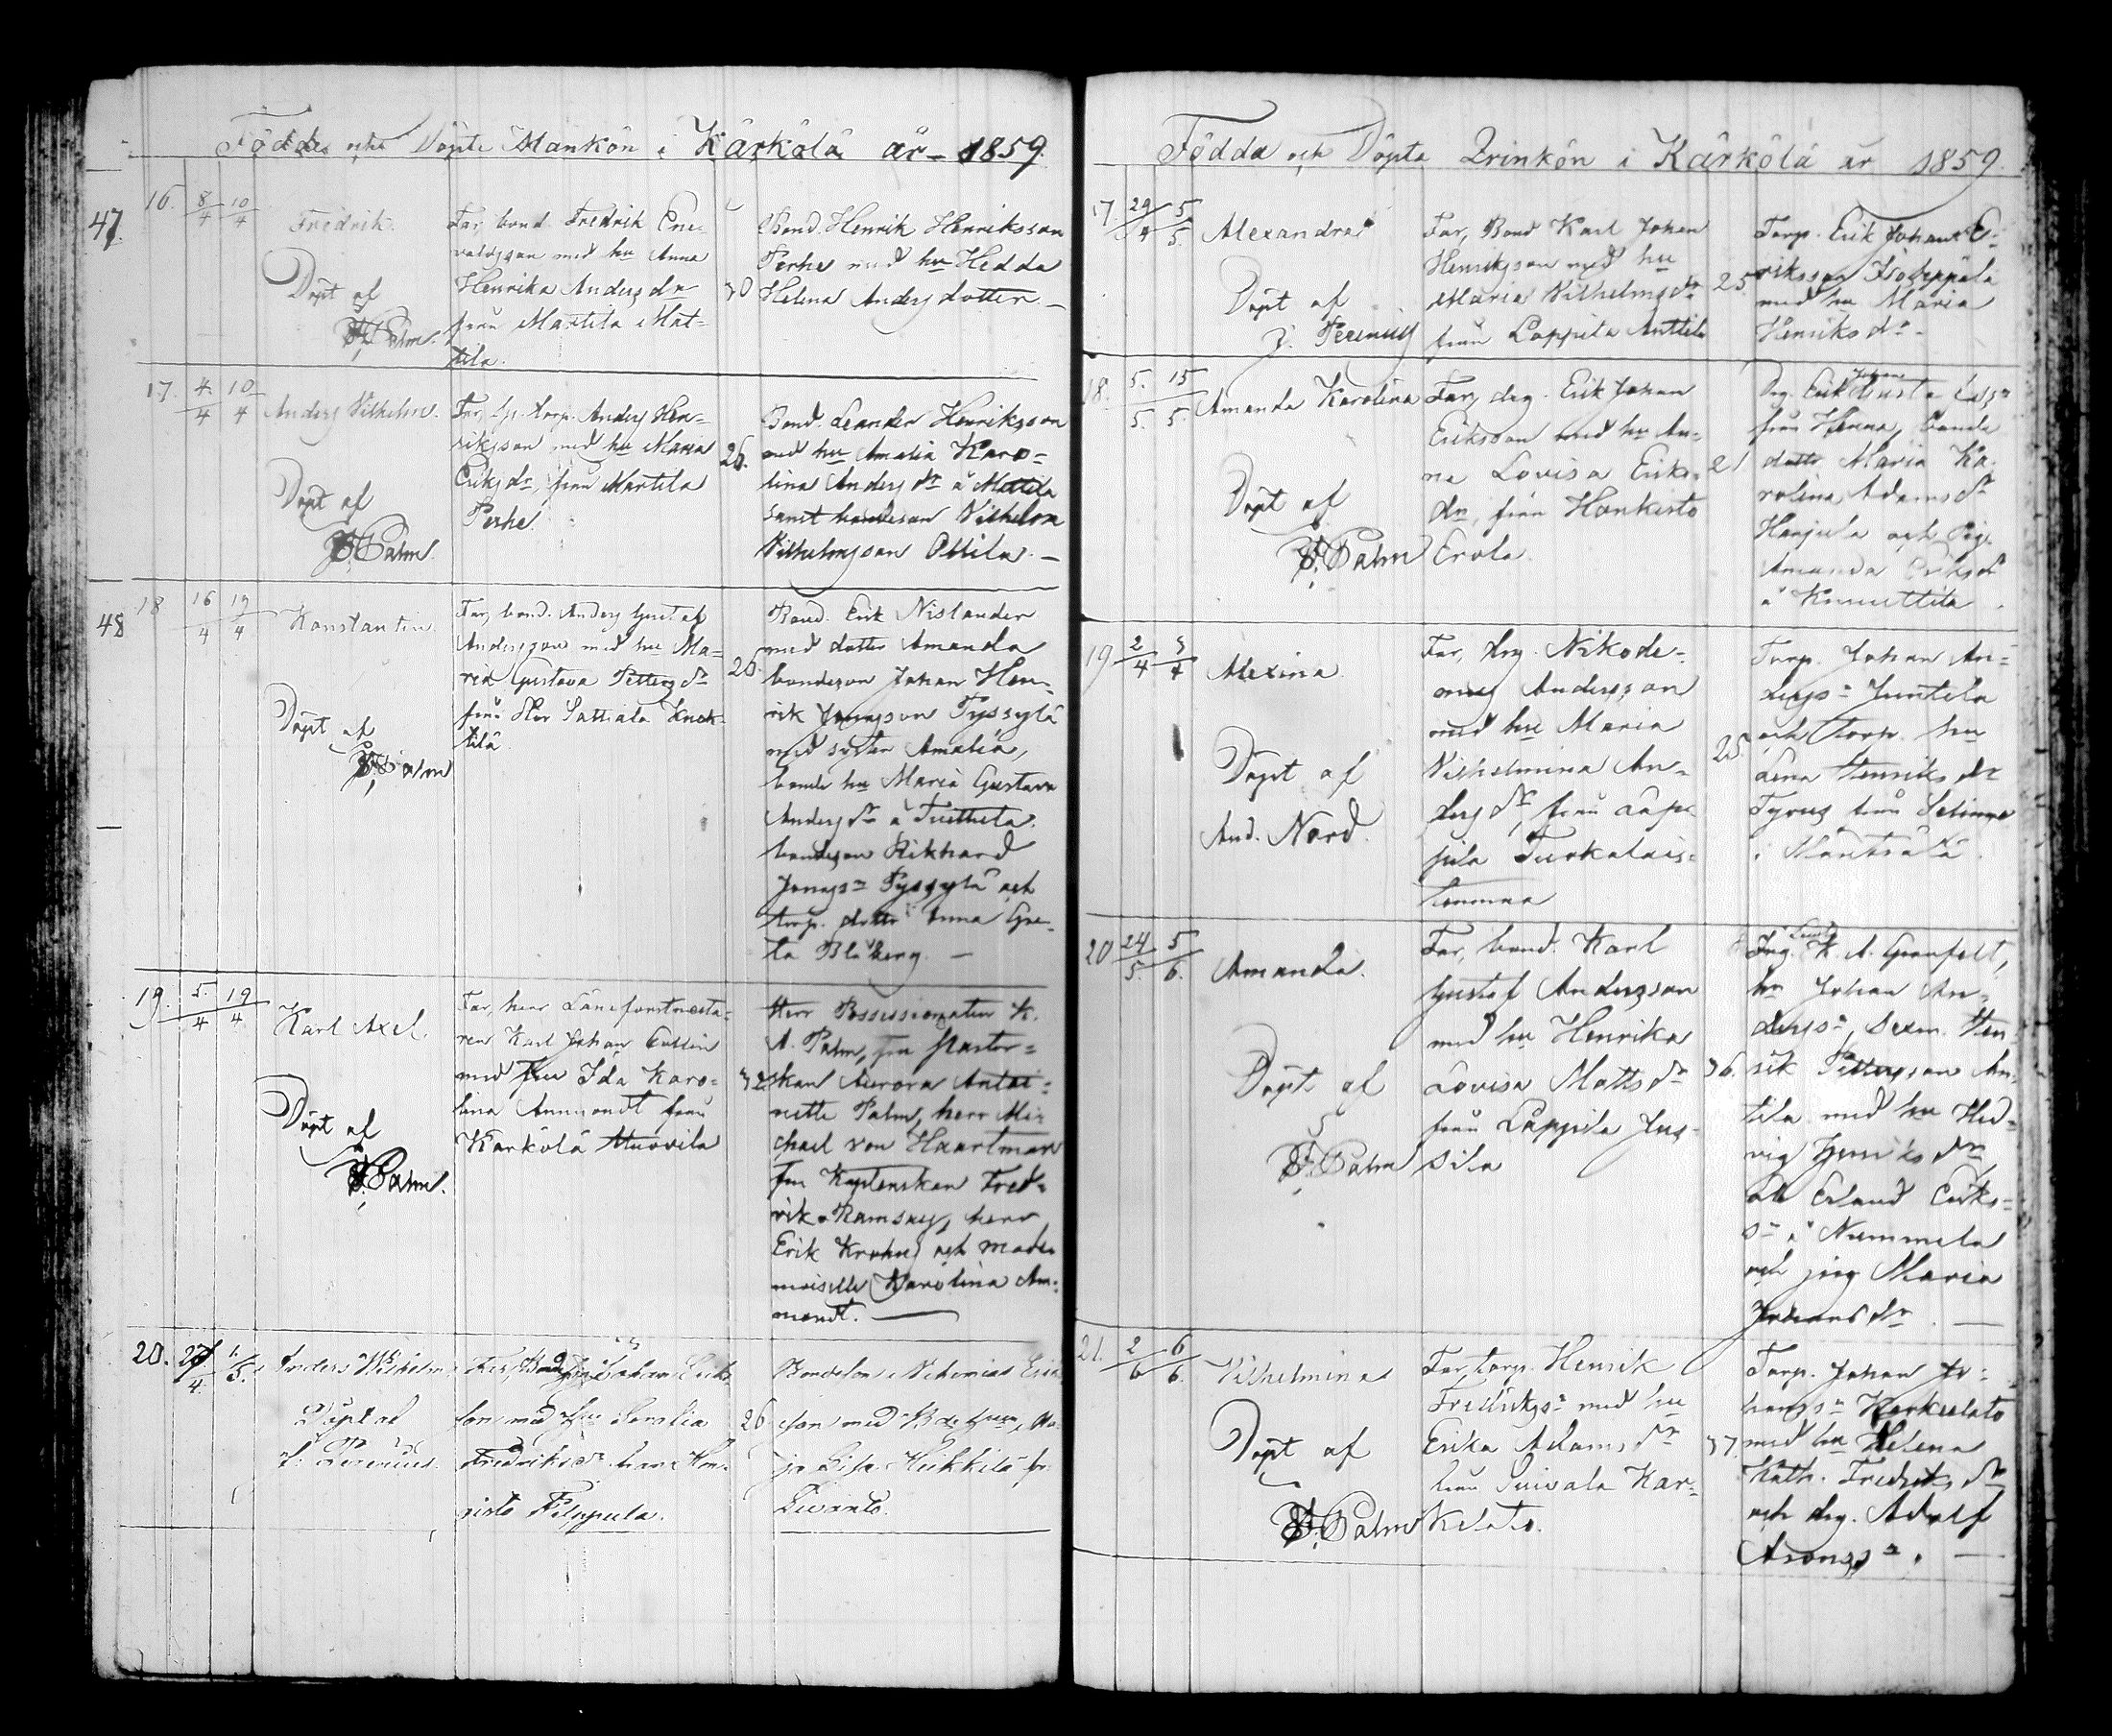 Födde och Döpte Mankön i Kärkölä år 1859.
47.
16. 8/4 10/4
Fredrik.
Döpt af
Palm.
Far, bond. Fredrik Ene-
valdsson med hu Anna
Henrika Anders dr
från Marttila Mat-
tila.
30
Bond. Henrik Henriksson
Perhe med hu Hedda
Helena Anders dotter. —
17. 4/4 10/4
Anders Vilhelm.
Döpt af
Palm.
Far, torp. Anders Hen-
riksson med hu Maria
Eriks dr, från Marttila
Perhe.
26.
Bond. Leander Henriksson
med hu Amalia Karo-
lina Anders dr å Mattila
samt bondeson Vilhelm
Vilhelmsson Ottila. —
48
18 16/4 19/4
Konstantin.
Döpt af
Palm
Far, bond. Anders Gustaf
Andersson med hu Ma-
ria Gustava Petters dr
från Hev Sattiala Knok-
tilä
25.
Bond. Erik Nislander
med dotter Amanda
bondeson Johan Hen-
rik Jonasson Pyssylä
med syster Amalia,
bonde hu Maria Gustava
Anders dr å Tuithela.
bondeson Rikhard
Jonass n Pyssylä och
torp. dotter Anna Gre-
ta Blåberg. —
19. 5/4 19/4
Karl Axel.
Döpt af
Palm.
Far, herr Länsforstmästa-
ren Karl Johan
med fru Ida Karo-
lina Ammondt från
Kärkölä Huovila
32
Herr Possessionaten K.
A. Palm, fru Pastor-
skan Aurora Antoi-
nette Palm, herr Mi-
chael von Haartman
fru Kaptenskan Fred-
rika Ramsay, herr
Erik Krohn och made-
moiselle Karolina Am-
mondt. —
20. 27/4 1/5.
Anders Vilhelm
Döpt af
J. Perenius.
Far, Bonden Johan Eriks
son med hu Seralia
Fredriks dr från Hon-
gisto Filppula.
26
Bondeson Nehemias Erik
son med Bde hu, Ma-
ja Lisa Hukkila fr
Födda och Döpta Qvinkön i Kärkölä år 1859.
17. 29/4 5/5
Alexandra
Döpt af
J. Perenius
Far, Bond Karl Johan
Henriksson med hu
Maria Vilhelms dr
från Lappila Anttila
25.
Torp. Erik Johan E-
riksson Isoseppälä
med hu Maria
Henriks dr —
18. 5/5. 15/5.
Amanda Karolina
Döpt af
Palm
Far, drg. Erik Johan
Eriksson med hu An-
na Lovisa Eriks-
dr, från Honkisto
Erola.
21
Drg. Erik Johan
från Henna, bonde
dotter Maria Ka-
rolina Adams dr
Harjula och Pig.
Amanda Eriks dr
å Knuuttila.
19 2/4 3/4
Alexina
Döpt af
And. Nord.
Far, drg. Nikode-
mus Andersson
med hu Maria
Vilhelmina An-
ders dr, från Lap-
pila Turkalais-
tommaa
25.
Torp. Johan An-
derss n Juntila
och torp. hu
Lena Henriks dr
Tyrus från Sälinge
i Mäntsälä.
20 24/5 5/6.
Amanda.
Döpt af
Palm
Far, bond. Karl
Gustaf Andersson
med hu Henrika
Lovisa Matts dr
från Lappila Jus-
sila
36.
K. A. Granfelt,
hr Johan An-
derss n, Sexm. Hen
rik Pettersson An-
tila med hu Hed-
vig Henriks dr
och Erland Eriks-
s n å Nummela
och pig Maria
Johans dr. —
21. 2/6 6/6.
Vilhelmina
Döpt af
Palm
Far, torp. Henrik
Fredrikss n med hu
Erika Adams dr
från Suivala Kar-
kelato.
37.
Torp. Johan Jo-
hanss n Karkelato
med hu Helena
Kath. Fredriks dr
och drg. Adolf
Aronss n. —